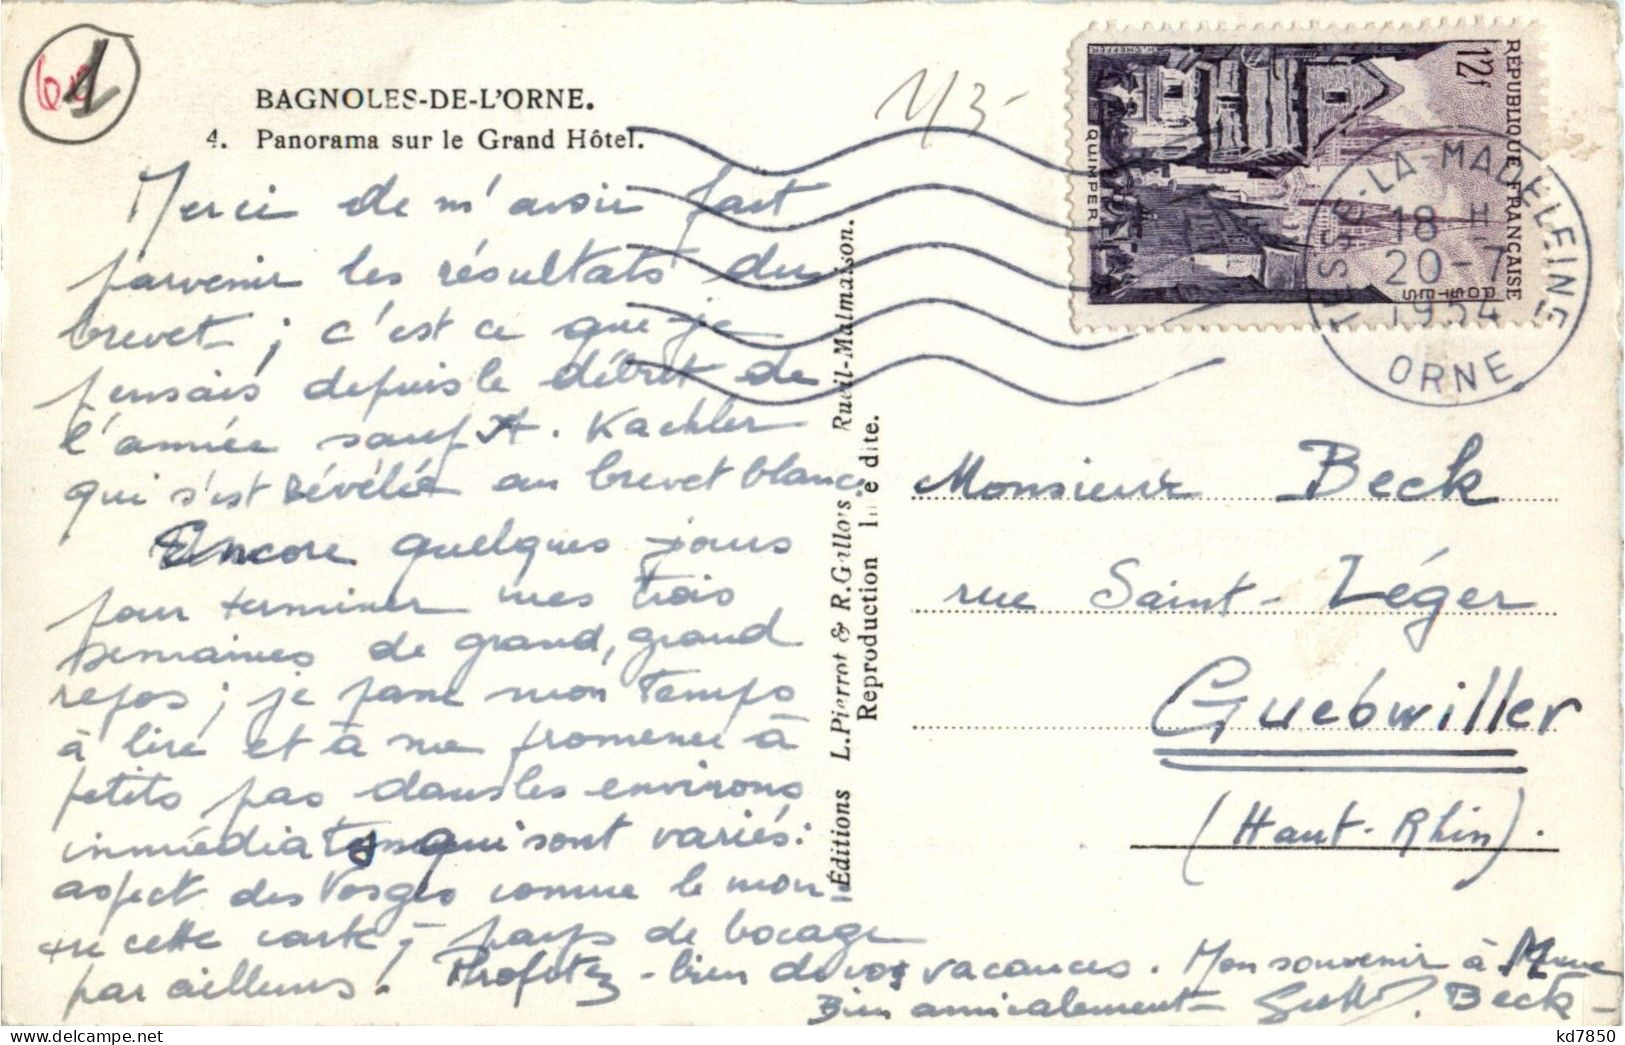 61
BAGNOLES-DE-L'ORNE.
4. Panorama sur le Grand Hôtel.
Merci de m'avoir fait
parvenir les résultats du
brevet ; c'est ce que je
pensais depuis le début de
l'année sauf A. Kachler
qui s'est révélée au brevet blanc.
Encore quelques jours
pour terminer mes trois
semaines de grand, grand
repos ; je passe mon temps
à lire et à me promener à
petits pas dans les environs
immédiats qui sont variés :
aspect des Vosges comme le mon-
tre cette carte, - pays de bocage
par ailleurs. Profitez-bien de vos vacances. Mon souvenir à Mme
Beck -
Bien amicalement
Éditions L. Pierrot & R. Gillois Rueil-Malmaison.
Reproduction dite.
REPUBLIQUE FRANÇAISE
12f
POSTES
QUIMPER
H. CHEFFER
TESSE-LA-MADELEINE
18 H
20-7
1954
ORNE
Monsieur Beck
rue Saint-Léger
Guebwiller
(Haut-Rhin).
kd7850